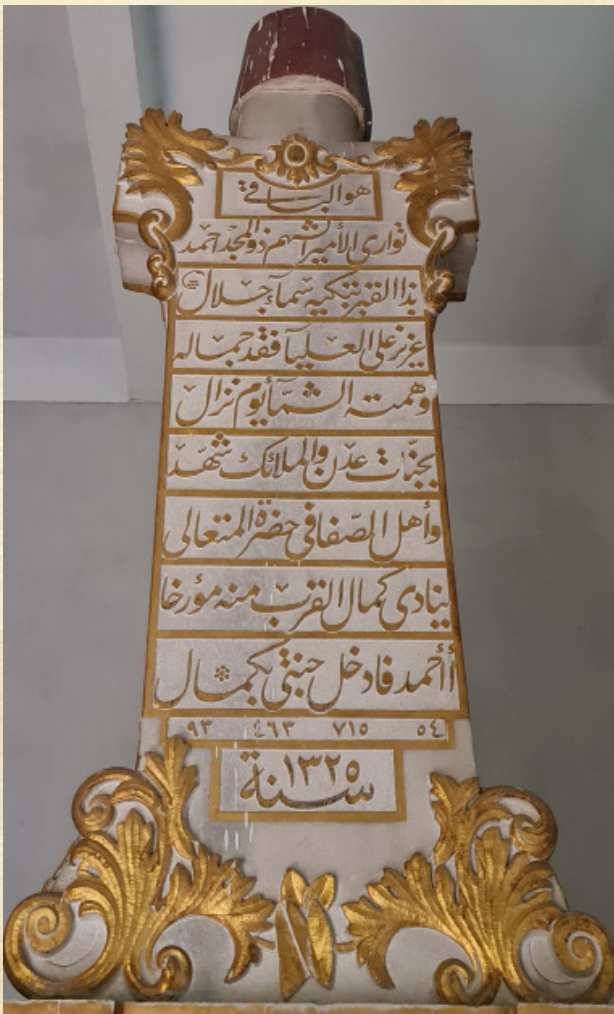 هو الباقي
توارى الأمير الشهم ذو المجد احمد
بذا القبر تبكيه سمآء جلال
عزيز على العليآ فقد جماله
وهمته الشمّآ يوم نزال
بجنّات عدن والملائك شهّد
وأهل الصّفا في حضرة المتعالى
ينادى كمال القرب منه مؤرخا
أأحمد فادخل جنتى بكمال
٥٤ ٧١٥ ٤٦٣ ٩٣
سنة ١٣٢٥